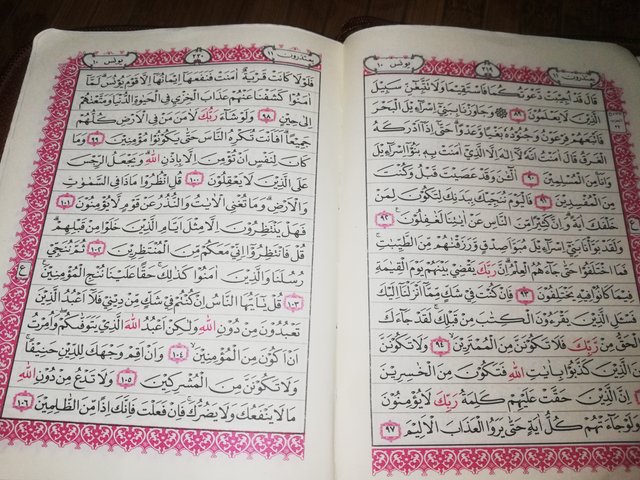 يعتذرون ١١ يونس ١٠
قَالَ قَدْ اُجِيْبَتْ دَعْوَتُكُمَا فَاسْتَقِيْمَا وَلَا تَتَّبِعٰٓنِّ سَبِيْلَ
الَّذِيْنَ لَا يَعْلَمُوْنَ ٨٩ وَجَاوَزْنَا بِبَنِيْٓ اِسْرَآءِيْلَ الْبَحْرَ
فَاَتْبَعَهُمْ فِرْعَوْنُ وَجُنُوْدُهٗ بَغْيًا وَّعَدْوًا حَتّٰٓى اِذَآ اَدْرَكَهُ
الْغَرَقُ قَالَ اٰمَنْتُ اَنَّهٗ لَآ اِلٰهَ اِلَّا الَّذِيْٓ اٰمَنَتْ بِهٖ بَنُوْٓا اِسْرَآءِيْلَ
وَاَنَا مِنَ الْمُسْلِمِيْنَ ٩٠ آٰلْـٰٔنَ وَقَدْ عَصَيْتَ قَبْلُ وَكُنْتَ
مِنَ الْمُفْسِدِيْنَ ٩١ فَالْيَوْمَ نُنَجِّيْكَ بِبَدَنِكَ لِتَكُوْنَ لِمَنْ
خَلْفَكَ اٰيَةً وَاِنَّ كَثِيْرًا مِّنَ النَّاسِ عَنْ اٰيٰتِنَا لَغٰفِلُوْنَ ٩٢
وَلَقَدْ بَوَّأْنَا بَنِيْٓ اِسْرَآءِيْلَ مُبَوَّاَ صِدْقٍ وَّرَزَقْنٰهُمْ مِّنَ الطَّيِّبٰتِ
فَمَا اخْتَلَفُوْا حَتّٰى جَآءَهُمُ الْعِلْمُ اِنَّ رَبَّكَ يَقْضِيْ بَيْنَهُمْ يَوْمَ الْقِيٰمَةِ
فِيْمَا كَانُوْا فِيْهِ يَخْتَلِفُوْنَ ٩٣ فَاِنْ كُنْتَ فِيْ شَكٍّ مِّمَّآ اَنْزَلْنَآ اِلَيْكَ
فَسْـَٔلِ الَّذِيْنَ يَقْرَءُوْنَ الْكِتٰبَ مِنْ قَبْلِكَ لَقَدْ جَآءَكَ
الْحَقُّ مِنْ رَّبِّكَ فَلَا تَكُوْنَنَّ مِنَ الْمُمْتَرِيْنَ ٩٤ وَلَا تَكُوْنَنَّ
مِنَ الَّذِيْنَ كَذَّبُوْا بِاٰيٰتِ اللّٰهِ فَتَكُوْنَ مِنَ الْخٰسِرِيْنَ
اِنَّ الَّذِيْنَ حَقَّتْ عَلَيْهِمْ كَلِمَةُ رَبِّكَ لَا يُؤْمِنُوْنَ
وَلَوْ جَآءَتْهُمْ كُلُّ اٰيَةٍ حَتّٰى يَرَوُا الْعَذَابَ الْاَلِيْمَ ٩٧
يعتذرون ١١ ٢٢٠ يونس ١٠
فَلَوْلَا كَانَتْ قَرْيَةٌ اٰمَنَتْ فَنَفَعَهَآ اِيْمَانُهَآ اِلَّا قَوْمَ يُوْنُسَ لَمَّآ
اٰمَنُوْا كَشَفْنَا عَنْهُمْ عَذَابَ الْخِزْيِ فِي الْحَيٰوةِ الدُّنْيَا وَمَتَّعْنٰهُمْ
اِلٰى حِيْنٍ ٩٨ وَلَوْ شَآءَ رَبُّكَ لَاٰمَنَ مَنْ فِي الْاَرْضِ كُلُّهُمْ
جَمِيْعًا اَفَاَنْتَ تُكْرِهُ النَّاسَ حَتّٰى يَكُوْنُوْا مُؤْمِنِيْنَ ٩٩ وَمَا
كَانَ لِنَفْسٍ اَنْ تُؤْمِنَ اِلَّا بِاِذْنِ اللّٰهِ وَيَجْعَلُ الرِّجْسَ
عَلَى الَّذِيْنَ لَا يَعْقِلُوْنَ ١٠٠ قُلِ انْظُرُوْا مَاذَا فِي السَّمٰوٰتِ
وَالْاَرْضِ وَمَا تُغْنِى الْاٰيٰتُ وَالنُّذُرُ عَنْ قَوْمٍ لَّا يُؤْمِنُوْنَ ١٠١
فَهَلْ يَنْتَظِرُوْنَ اِلَّا مِثْلَ اَيَّامِ الَّذِيْنَ خَلَوْا مِنْ قَبْلِهِمْ
قُلْ فَانْتَظِرُوْٓا اِنِّيْ مَعَكُمْ مِّنَ الْمُنْتَظِرِيْنَ ١٠٢ ثُمَّ نُنَجِّيْ
رُسُلَنَا وَالَّذِيْنَ اٰمَنُوْا كَذٰلِكَ حَقًّا عَلَيْنَا نُنْجِ الْمُؤْمِنِيْنَ
١٠٣ قُلْ يٰٓاَيُّهَا النَّاسُ اِنْ كُنْتُمْ فِيْ شَكٍّ مِّنْ دِيْنِيْ فَلَآ اَعْبُدُ الَّذِيْنَ
تَعْبُدُوْنَ مِنْ دُوْنِ اللّٰهِ وَلٰكِنْ اَعْبُدُ اللّٰهَ الَّذِيْ يَتَوَفّٰىكُمْ وَاُمِرْتُ
اَنْ اَكُوْنَ مِنَ الْمُؤْمِنِيْنَ ١٠٤ وَاَنْ اَقِمْ وَجْهَكَ لِلدِّيْنِ حَنِيْفًا
وَلَا تَكُوْنَنَّ مِنَ الْمُشْرِكِيْنَ ١٠٥ وَلَا تَدْعُ مِنْ دُوْنِ اللّٰهِ
مَا لَا يَنْفَعُكَ وَلَا يَضُرُّكَ فَاِنْ فَعَلْتَ فَاِنَّكَ اِذًا مِّنَ الظّٰلِمِيْنَ ١٠٦